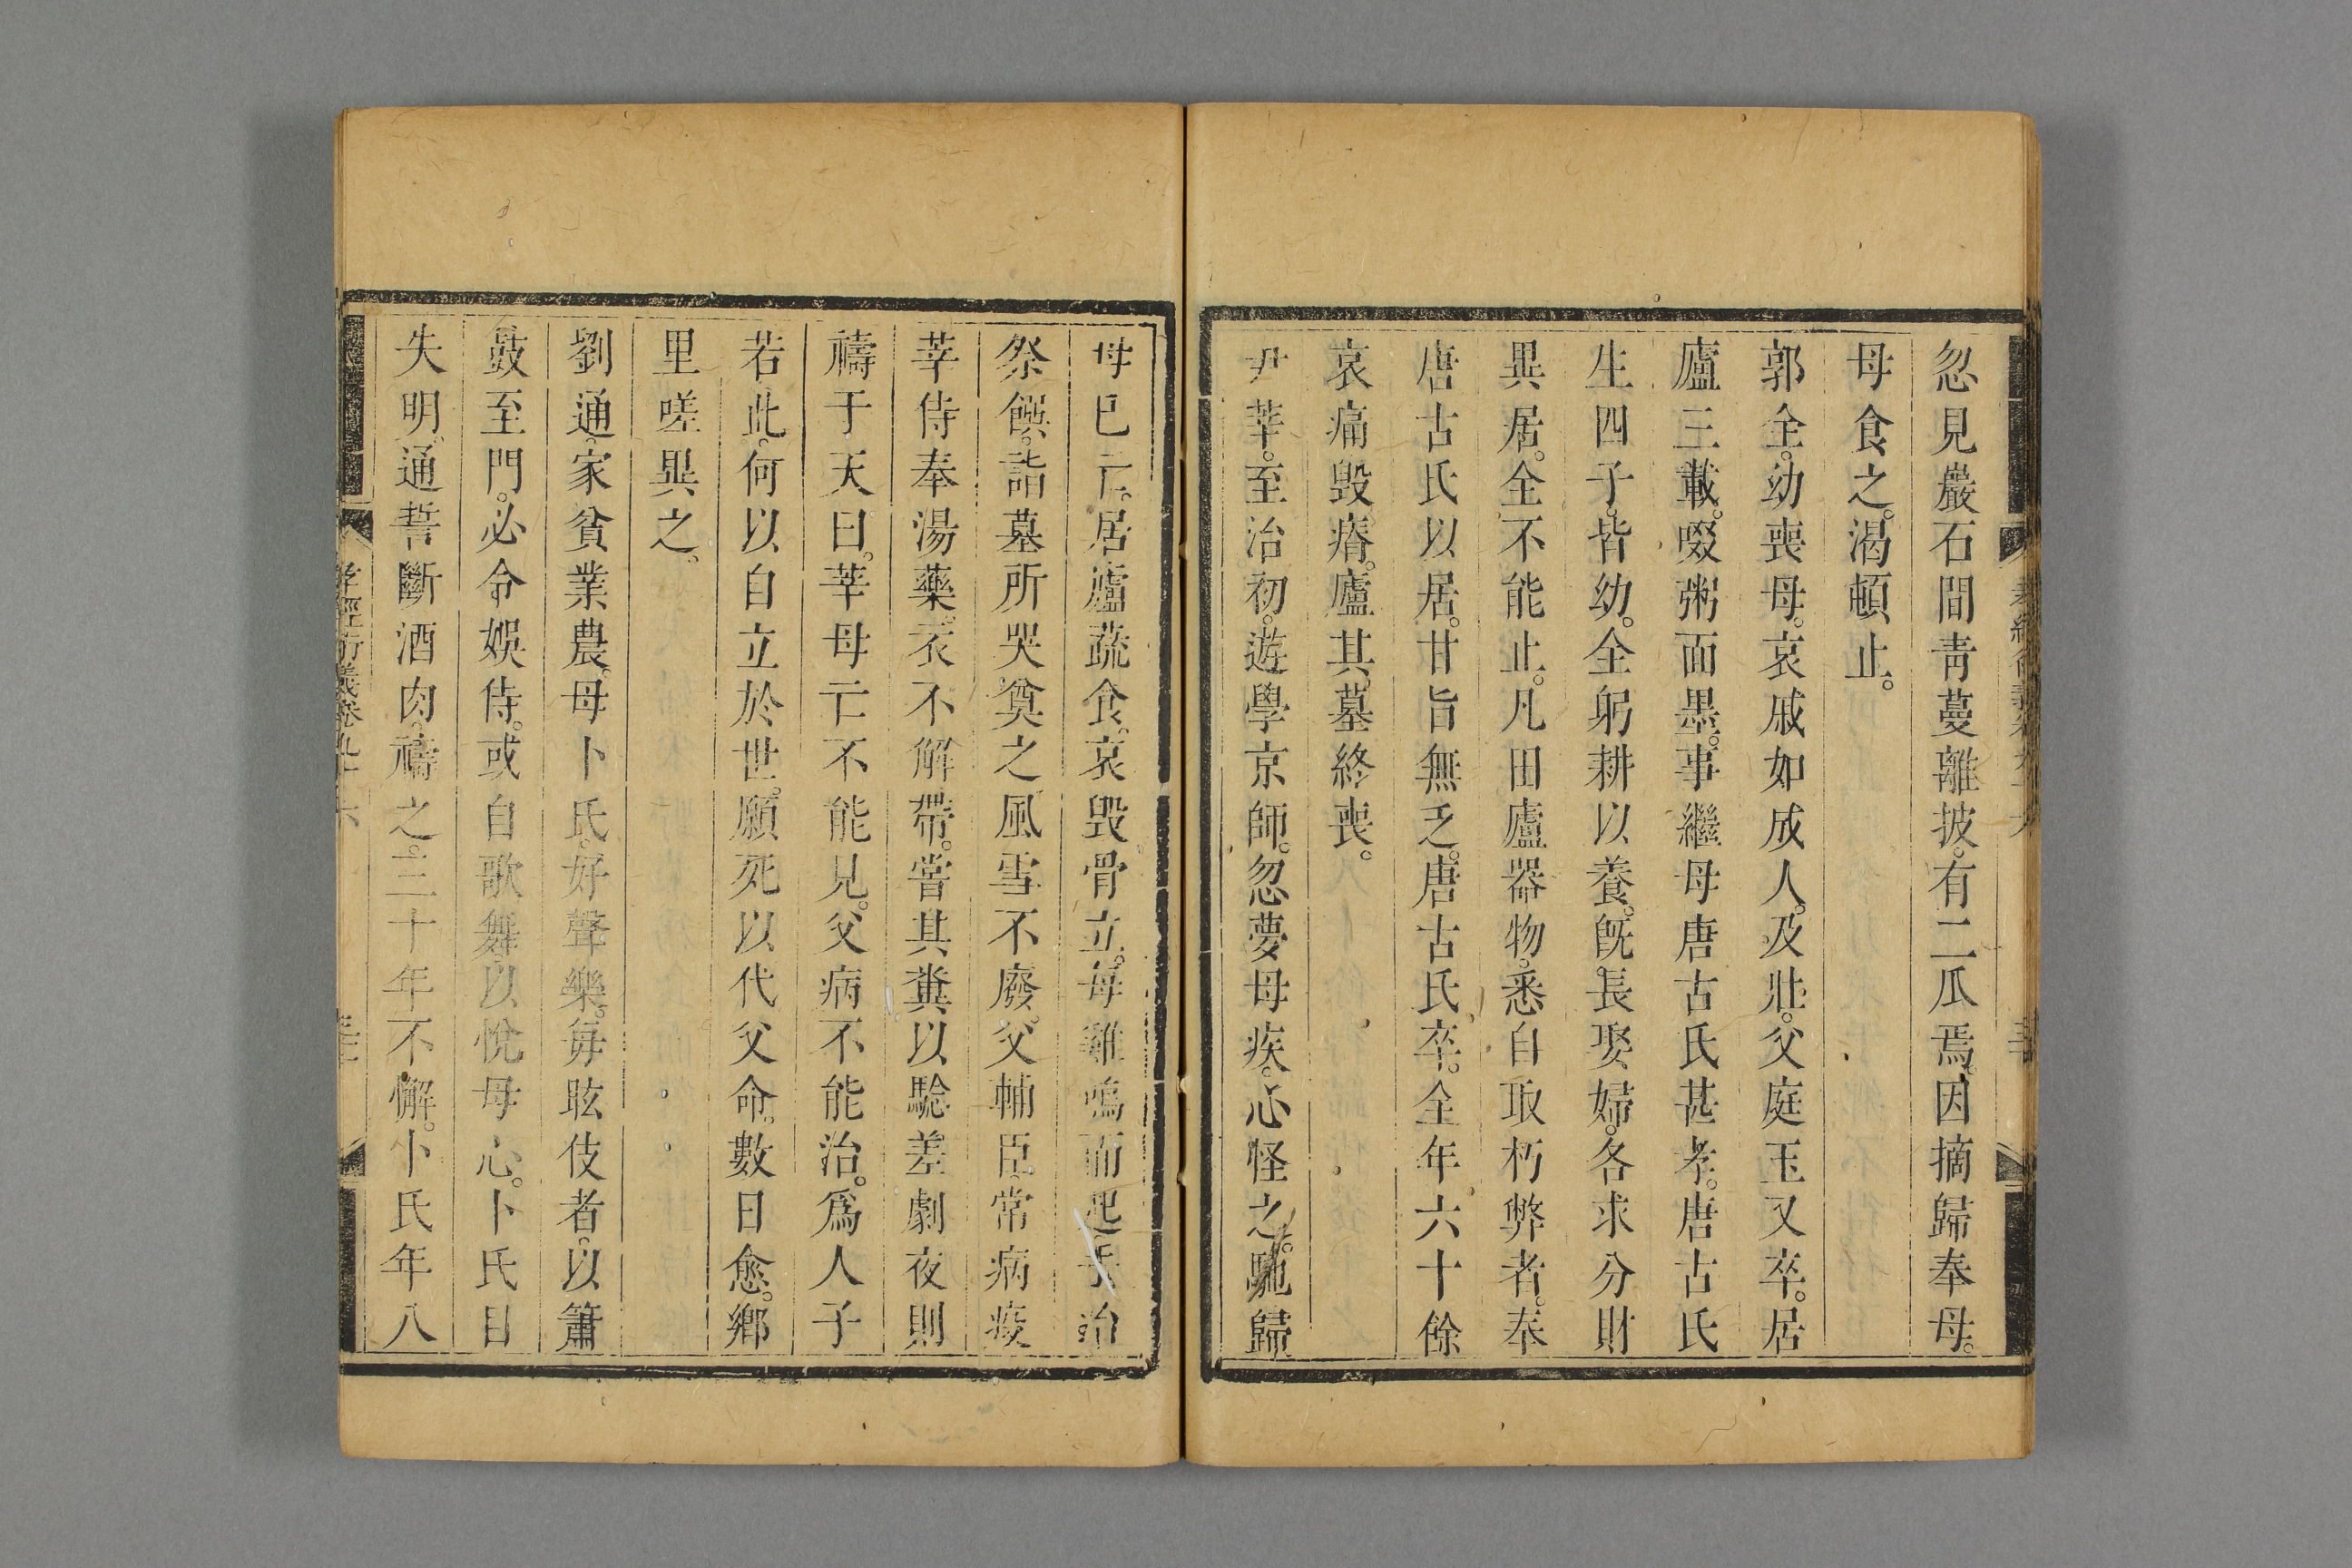 忽見巖石間靑蔓離披。有二瓜焉。因摘歸奉母。
母食之。渴頓止。
郭全。幼喪母。哀戚如成人。及壯。父庭玉又卒。居
廬三載。啜粥面墨。事繼母唐古氏甚孝。唐古氏
生四子。皆幼。全躬耕以養。旣長娶婦。各求分財
異居。全不能止。凡田廬器物。悉自取朽弊者。奉
唐古氏以居。甘旨無乏。唐古氏卒。全年六十餘
哀痛毁瘠。廬其墓終喪。
尹莘。至治初。遊學京師。忽夢母疾。心怪之。馳歸
母已亡。居廬蔬食。哀毁骨立。每雞鳴而起手治
祭饌。詣墓所哭奠之。風雪不廢。父輔臣。常病疫
莘侍奉湯藥。衣不解帶。嘗其糞以驗差劇夜則
禱于天曰。莘母亡不能見。父病不能治。爲人子
若此。何以自立於世。願死以代父命。數日愈。鄉
里嗟異之。
劉通。家貧業農。母卜氏。好聲樂。每眩伎者。以簫
鼓至門。必令娛侍。或自歌舞以悅母心。卜氏目
失明。通誓斷酒肉。禱之。三十年不懈。卜氏年八
孝經衍義卷九十六